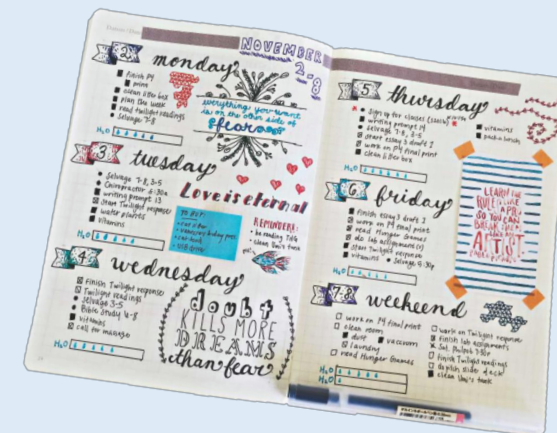 NOVEMBER
2-8
2
monday
finish P4
print
clean litter box
plan the week
read twilight readings
Selvage 7-8
H2O
everything you want
is on the other side of
fear
3
tuesday
Selvage 7-8, 3-5
Chiropractor
writing prompt 13
start Twilight response
water plants
vitamins
H2O
Love is eternal
TO BUY:
cat food
REMINDERS:
be reading THG
clean Umi's tank
4
wednesday
Finish Twilight response
Twilight readings
Selvage 3-5
Bible Study 6-8
vitamins
call for massage
H2O
doubt
KILLS MORE
DREAMS
than fear
5
thursday
sign up for classes
writing prompt 14
selvage 7-8, 3-5
start essay 3 draft 2
work on P4 final print
clean litter box
vitamins
H2O
6
friday
finish essay 3 draft 2
work on P4 final print
read Hunger Games
do lab assignment
start Twilight response
vitamins
Selvage
H2O
LEARN THE
RULES LIKE
A PRO,
SO YOU CAN
BREAK THEM
LIKE AN
ARTIST
7-8
weekend
work on P4 final print
clean room
dust
vacuum
laundry
read Hunger Games
work on Twilight response
finish lab assignments
finish Twilight readings
clean Umi's tank
H2O
H2O